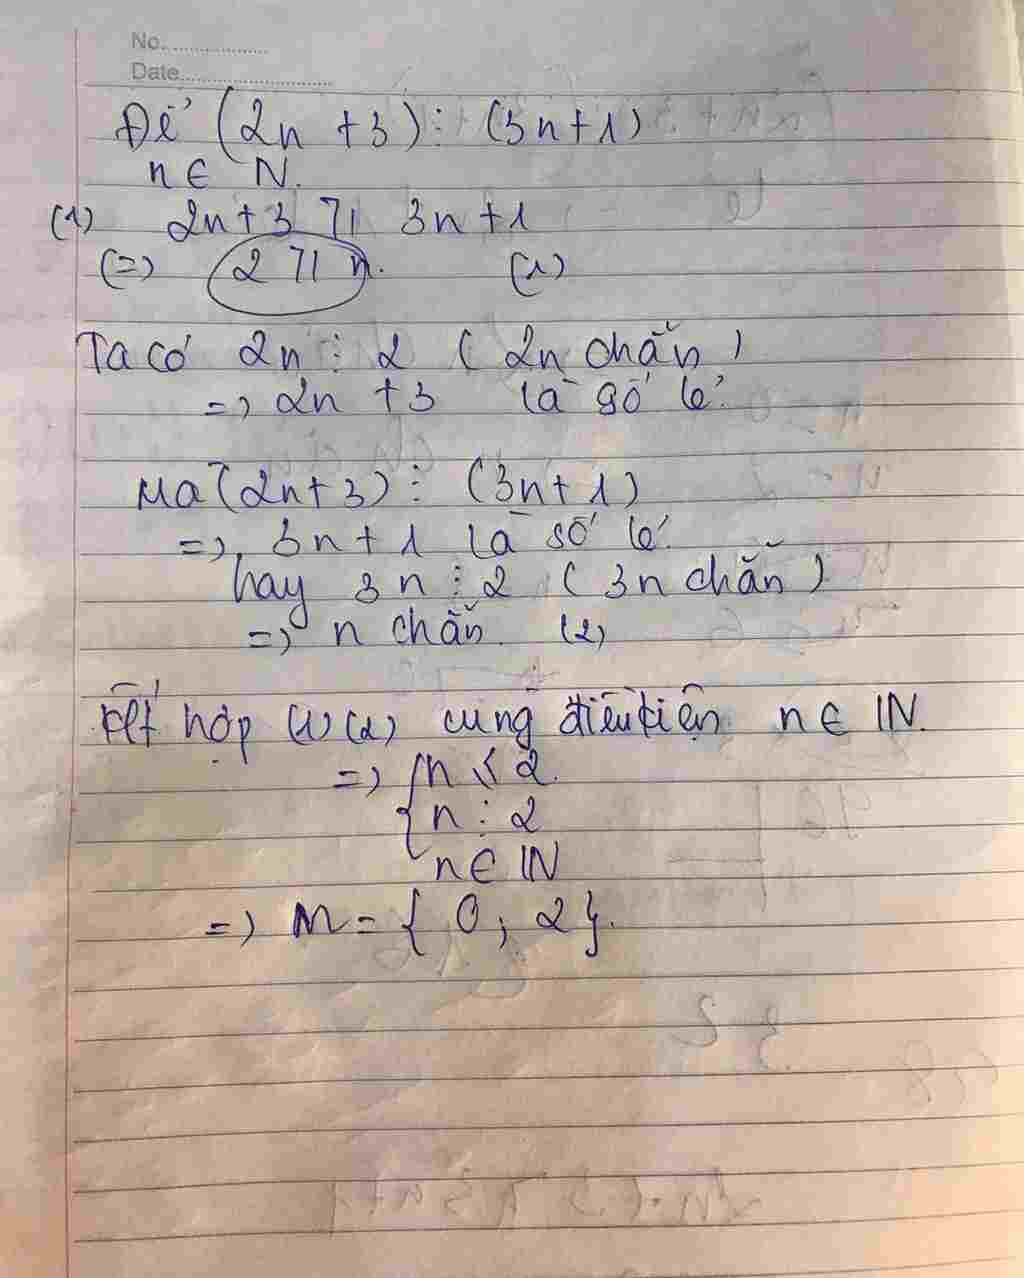 No.
Date
Để (2n + 3) ⋮ (3n + 1)
n ∈ N.
(1) 2n + 3 ≥ 3n + 1
(=) 2 ≥ n. (1)
Ta có 2n ⋮ 2 ( 2n chẵn )
=> 2n + 3 là số lẻ.
Mà (2n + 3) ⋮ (3n + 1)
=> 3n + 1 là số lẻ.
hay 3n ⋮ 2 ( 3n chẵn )
=> n chẵn. (2)
Kết hợp (1) (2) cùng điều kiện n ∈ IN.
=> { n ≤ 2.
n ⋮ 2
n ∈ IN
=> n = { 0 ; 2 }.